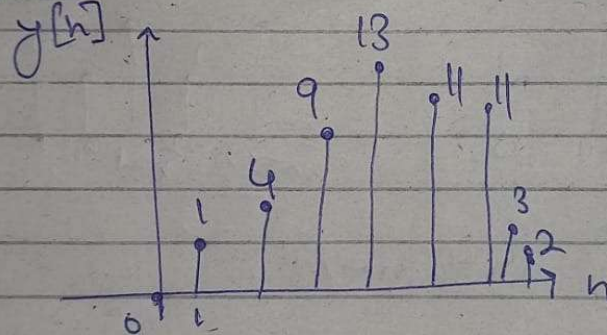 y[n]
13
9
11
11
4
1
3
2
n
0
1